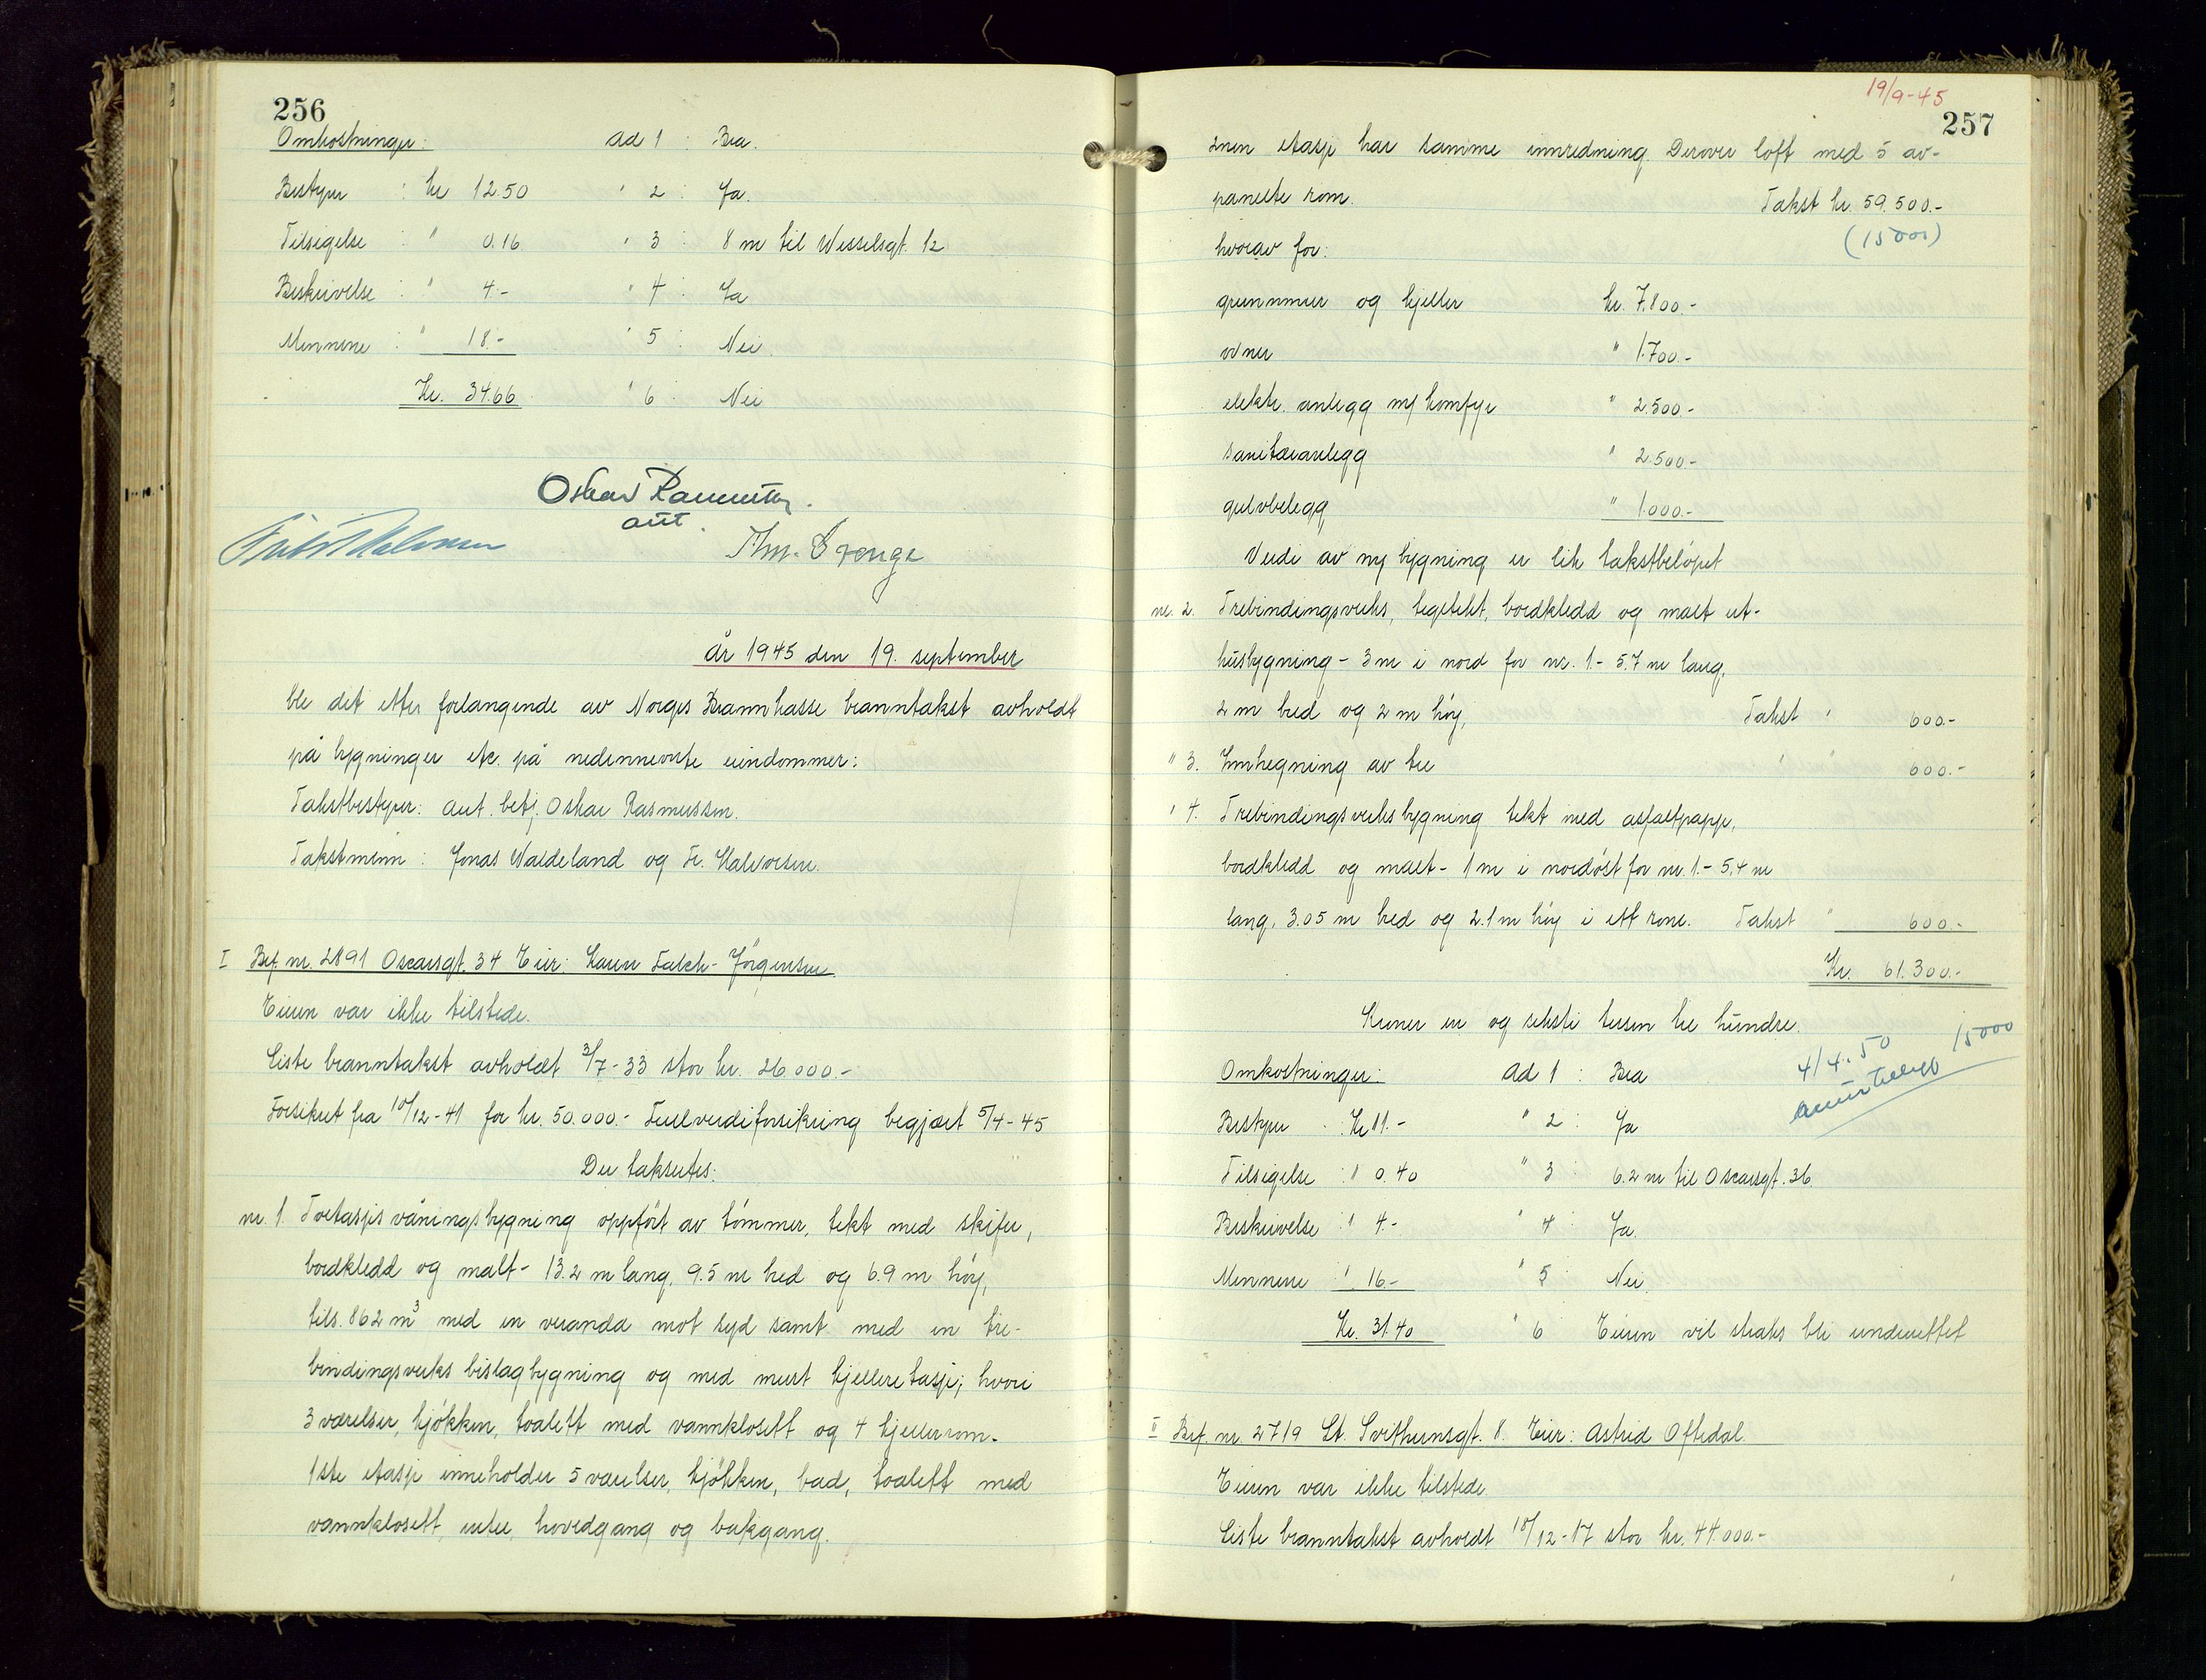 256
Omkostninger: Ad 1 : Bra.
Bestyrer : kr 12.50 " 2 : Ja.
Tilsigelse : " 0.16 " 3 : 8 m til Wesselsgt. 12
Beskrivelse : " 4.- " 4 : Ja
Mennene : " 18.- " 5 : Nei.
Kr. 34.66 " 6 : Nei
Oskar Rasmussen.
aut.
Th. Grenge
år 1945 den 19. september
ble det etter forlangende av Norges Brannkasse branntakst avholdt
på bygninger etc. på nedennevnte eiendommer:
Takstbestyrer: aut. betj. Oskar Rasmussen.
Takstmenn : Jonas Waldeland og Fr. Halvorsen.
I Brf. nr. 2891 Oscarsgt. 34 Eier: Karen Falch-Jörgensen
Eieren var ikke tilstede.
Siste branntakst avholdt 3/7-33 stor kr. 26.000.-
Forsikret fra 10/12-41 for kr. 50.000.- Fullverdiforsikring begjært 5/4-45
Der takseres:
nr. 1. Toetasjes våningsbygning oppfört av tömmer, tekt med skifer,
bordkledd og malt - 13.2 m lang, 9.5 m bred og 6.9 m höy,
tils. 862 m3 med en veranda mot syd samt med en tre-
bindingsverks bislagbygning og med murt kjelleretasje; hvori
3 værelser, kjökken, toalett med vannklosett og 4 kjellerrom.
1ste etasje inneholder 5 værelser, kjökken, bad, toalett med
vannklosett, entre, hovedgang og bakgang.
19/9-45
257
2nen etasje har samme innredning. Derover loft med 5 av-
panelte rom. Takst kr. 59.500.-
(15000)
hvorav for:
grunnmur og kjeller kr. 7.800.-
ovner " 1.700.-
elektr. anlegg m/ komfyr " 2.500.-
sanitæranlegg " 2.500.-
gulvbelegg " 1.000.-
Verdi av ny bygning er lik takstbelöpet
nr. 2. Trebindingsverks, teglteket, bordkledd og malt ut-
husbygning - 3 m i nord for nr. 1 - 5,7 m lang,
2 m bred og 2 m höy, Takst " 600.-
" 3. Innhegning av tre " " 600.-
" 4. Trebindingsverks bygning tekt med asfaltpapp,
bordkledd og malt - 1 m i nordöst for nr. 1. - 5,4 m
lang, 3.05 m bred og 2.1 m höy i ett rom. Takst " 600.-
Kr. 61.300.-
Kroner en og seksti tusen tre hundre.
4/4.50 15000
Omkostninger: Ad 1 : Bra
Bestyrer : Kr 11.- " 2 : Ja
Tilsigelse : " 0.40 " 3 : 6.2 m til Oscarsgt. 36.
Beskrivelse : " 4.- " 4 : Ja.
Mennene : " 16.- " 5 : Nei.
Kr. 31.40 " 6 Eieren vil straks bli underrettet
II Brf. nr. 2719 St. Svithunsgt. 8. Eier: Astrid Oftedal.
Eieren var ikke tilstede.
Siste branntakst avholdt 18/12-17 stor kr. 44.000.-